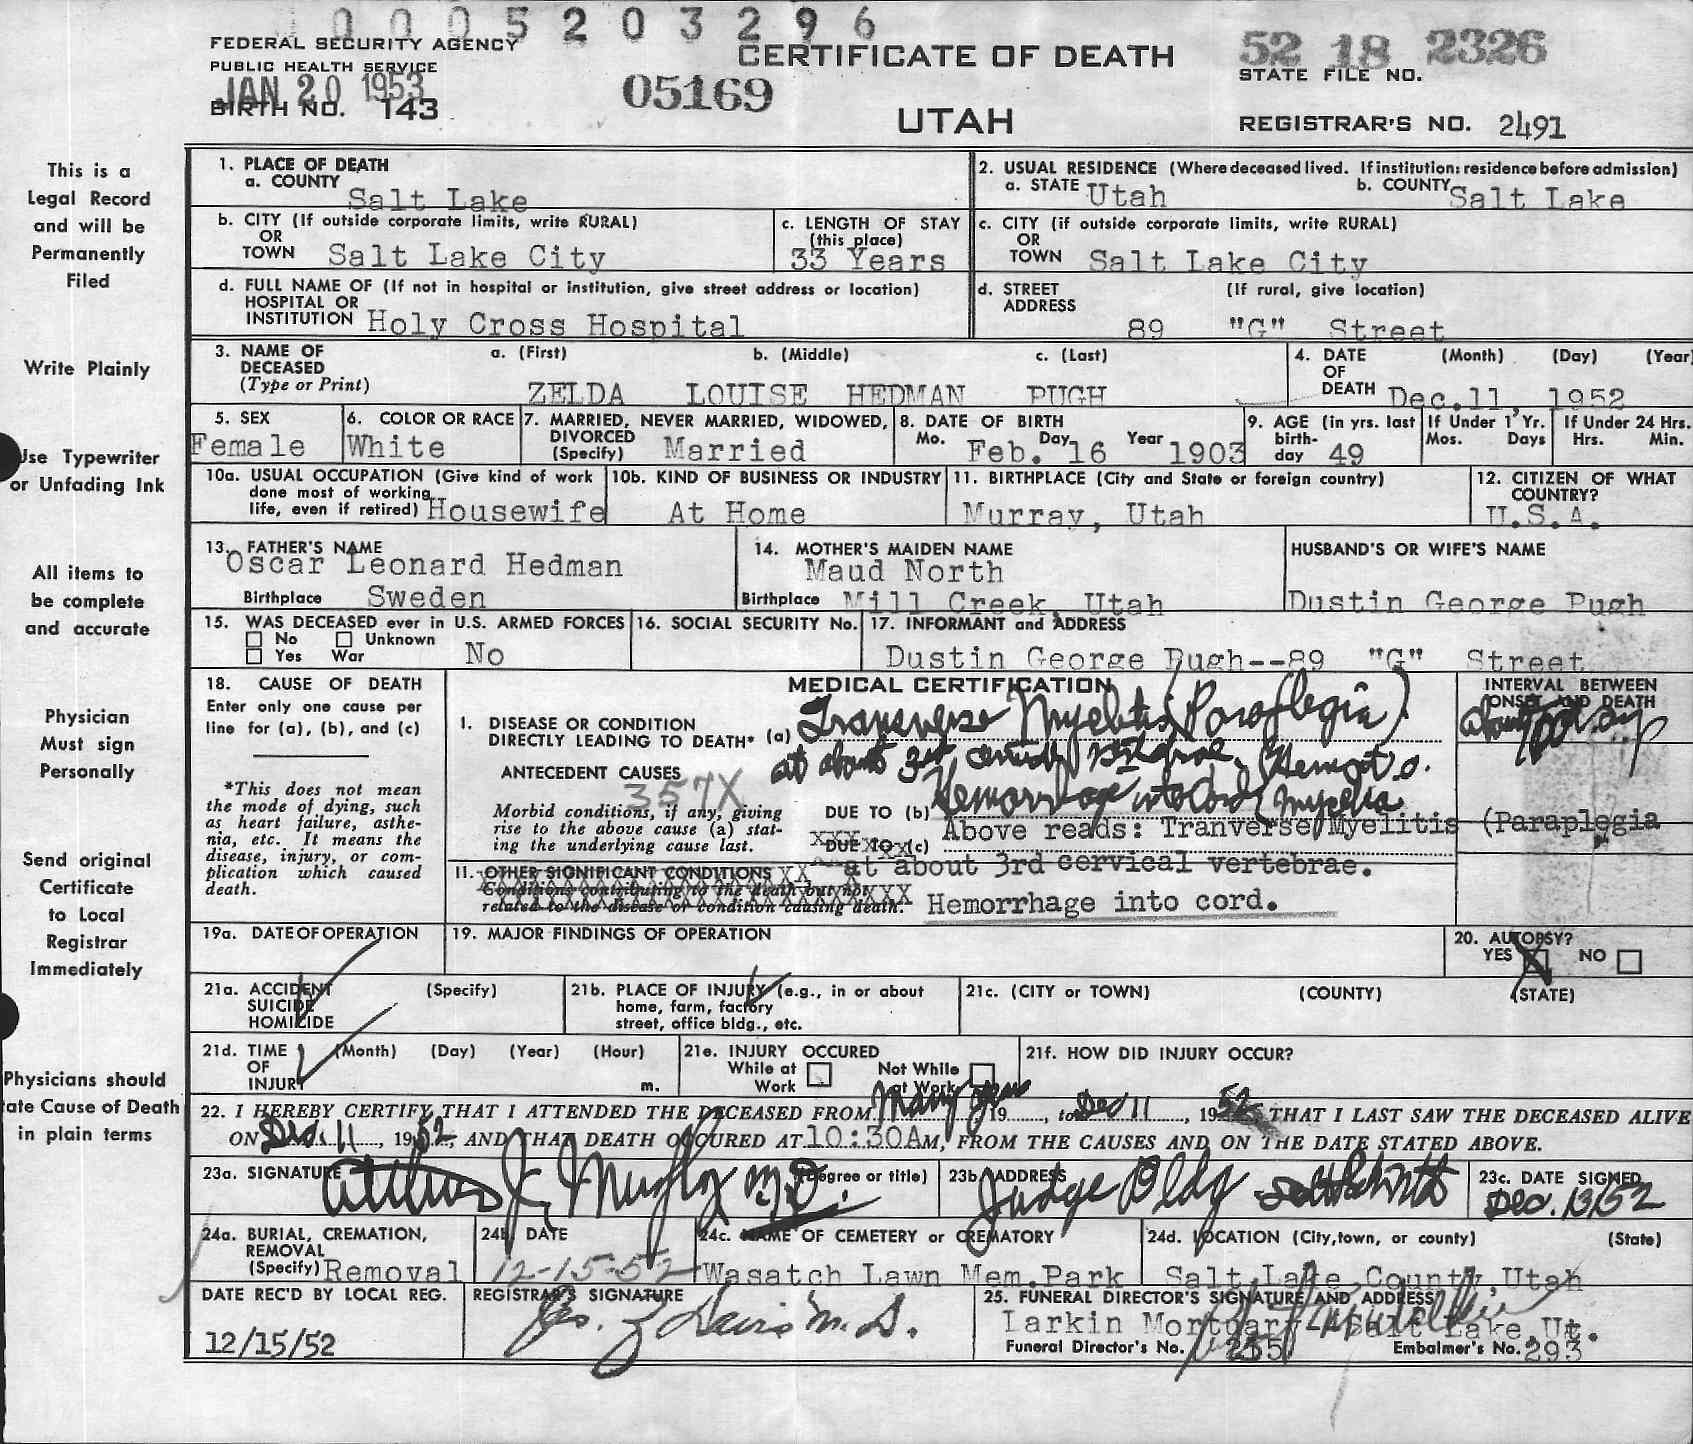 0 0 0 5 2 0 3 2 9 6
FEDERAL SECURITY AGENCY
PUBLIC HEALTH SERVICE
JAN 20 1953
BIRTH NO. 143
05169
CERTIFICATE OF DEATH
UTAH
52 18 2326
STATE FILE NO.
REGISTRAR'S NO. 2491
This is a
Legal Record
and will be
Permanently
Filed
Write Plainly
Use Typewriter
or Unfading Ink
All items to
be complete
and accurate
Physician
Must sign
Personally
Send original
Certificate
to Local
Registrar
Immediately
Physicians should
ate Cause of Death
in plain terms
1. PLACE OF DEATH
a. COUNTY Salt Lake
2. USUAL RESIDENCE (Where deceased lived. If institution: residence before admission)
a. STATE Utah b. COUNTY Salt Lake
b. CITY (If outside corporate limits, write RURAL)
OR
TOWN Salt Lake City
c. LENGTH OF STAY
(this place)
33 Years
c. CITY (if outside corporate limits, write RURAL)
OR
TOWN Salt Lake City
d. FULL NAME OF (If not in hospital or institution, give street address or location)
HOSPITAL OR
INSTITUTION Holy Cross Hospital
d. STREET (If rural, give location)
ADDRESS
89 "G" Street
3. NAME OF a. (First) b. (Middle) c. (Last)
DECEASED
(Type or Print)
ZELDA LOUISE HEDMAN PUGH
4. DATE (Month) (Day) (Year)
OF
DEATH Dec.11, 1952
5. SEX
Female
6. COLOR OR RACE
White
7. MARRIED, NEVER MARRIED, WIDOWED,
DIVORCED
(Specify) Married
8. DATE OF BIRTH
Mo. Day Year
Feb. 16 1903
9. AGE (in yrs. last
birth-
day 49
If Under 1 Yr.
Mos. Days
If Under 24 Hrs.
Hrs. Min.
10a. USUAL OCCUPATION (Give kind of work
done most of working
life, even if retired) Housewife
10b. KIND OF BUSINESS OR INDUSTRY
At Home
11. BIRTHPLACE (City and State or foreign country)
Murray, Utah
12. CITIZEN OF WHAT
COUNTRY?
U.S.A.
13. FATHER'S NAME
Oscar Leonard Hedman
Birthplace Sweden
14. MOTHER'S MAIDEN NAME
Maud North
Birthplace Mill Creek, Utah
HUSBAND'S OR WIFE'S NAME
Dustin George Pugh
15. WAS DECEASED ever in U.S. ARMED FORCES
No Unknown
Yes War No
16. SOCIAL SECURITY No.
17. INFORMANT and ADDRESS
Dustin George Pugh--89 "G" Street
18. CAUSE OF DEATH
Enter only one cause per
line for (a), (b), and (c)
*This does not mean
the mode of dying, such
as heart failure, asthe-
nia, etc. It means the
disease, injury, or com-
plication which caused
death.
MEDICAL CERTIFICATION
I. DISEASE OR CONDITION
DIRECTLY LEADING TO DEATH* (a) Transverse Myelitis (Paraplegia)
at about 3rd
ANTECEDENT CAUSES
357X
Morbid conditions, if any, giving
rise to the above cause (a) stat-
ing the underlying cause last.
DUE TO (b) Hemorrhage into Cord
XXX
DUE TO (c)
Above reads: Tranverse Myelitis (Paraplegia
at about 3rd cervical vertebrae.
Hemorrhage into cord.
II. OTHER SIGNIFICANT CONDITIONS XX
Conditions contributing to the death but not
related to the disease or condition causing death.
INTERVAL BETWEEN
ONSET AND DEATH
19a. DATE OF OPERATION
19. MAJOR FINDINGS OF OPERATION
20. AUTOPSY?
YES X NO
21a. ACCIDENT (Specify)
SUICIDE
HOMICIDE
21b. PLACE OF INJURY (e.g., in or about
home, farm, factory
street, office bldg., etc.
21c. (CITY or TOWN) (COUNTY) (STATE)
21d. TIME (Month) (Day) (Year) (Hour)
OF
INJURY m.
21e. INJURY OCCURED
While at Not While
Work at Work
21f. HOW DID INJURY OCCUR?
22. I HEREBY CERTIFY, THAT I ATTENDED THE DECEASED FROM Many years 19......, to Dec 11, 1952, THAT I LAST SAW THE DECEASED ALIVE
ON Dec. 11, 1952, AND THAT DEATH OCCURED AT 10:30AM, FROM THE CAUSES AND ON THE DATE STATED ABOVE.
23a. SIGNATURE (Degree or title)
Arthur J. Murphy M.D.
23b. ADDRESS
Judge Bldg
23c. DATE SIGNED
Dec. 13, 52
24a. BURIAL, CREMATION,
REMOVAL
(Specify) Removal
24b. DATE
12-15-52
24c. NAME OF CEMETERY or CREMATORY
Wasatch Lawn Mem.Park
24d. LOCATION (City, town, or county) (State)
Salt Lake County, Utah
DATE REC'D BY LOCAL REG.
12/15/52
REGISTRAR'S SIGNATURE
M.D.
25. FUNERAL DIRECTOR'S SIGNATURE AND ADDRESS
Larkin Mortuary Salt Lake, Ut.
Funeral Director's No. 255 Embalmer's No. 293